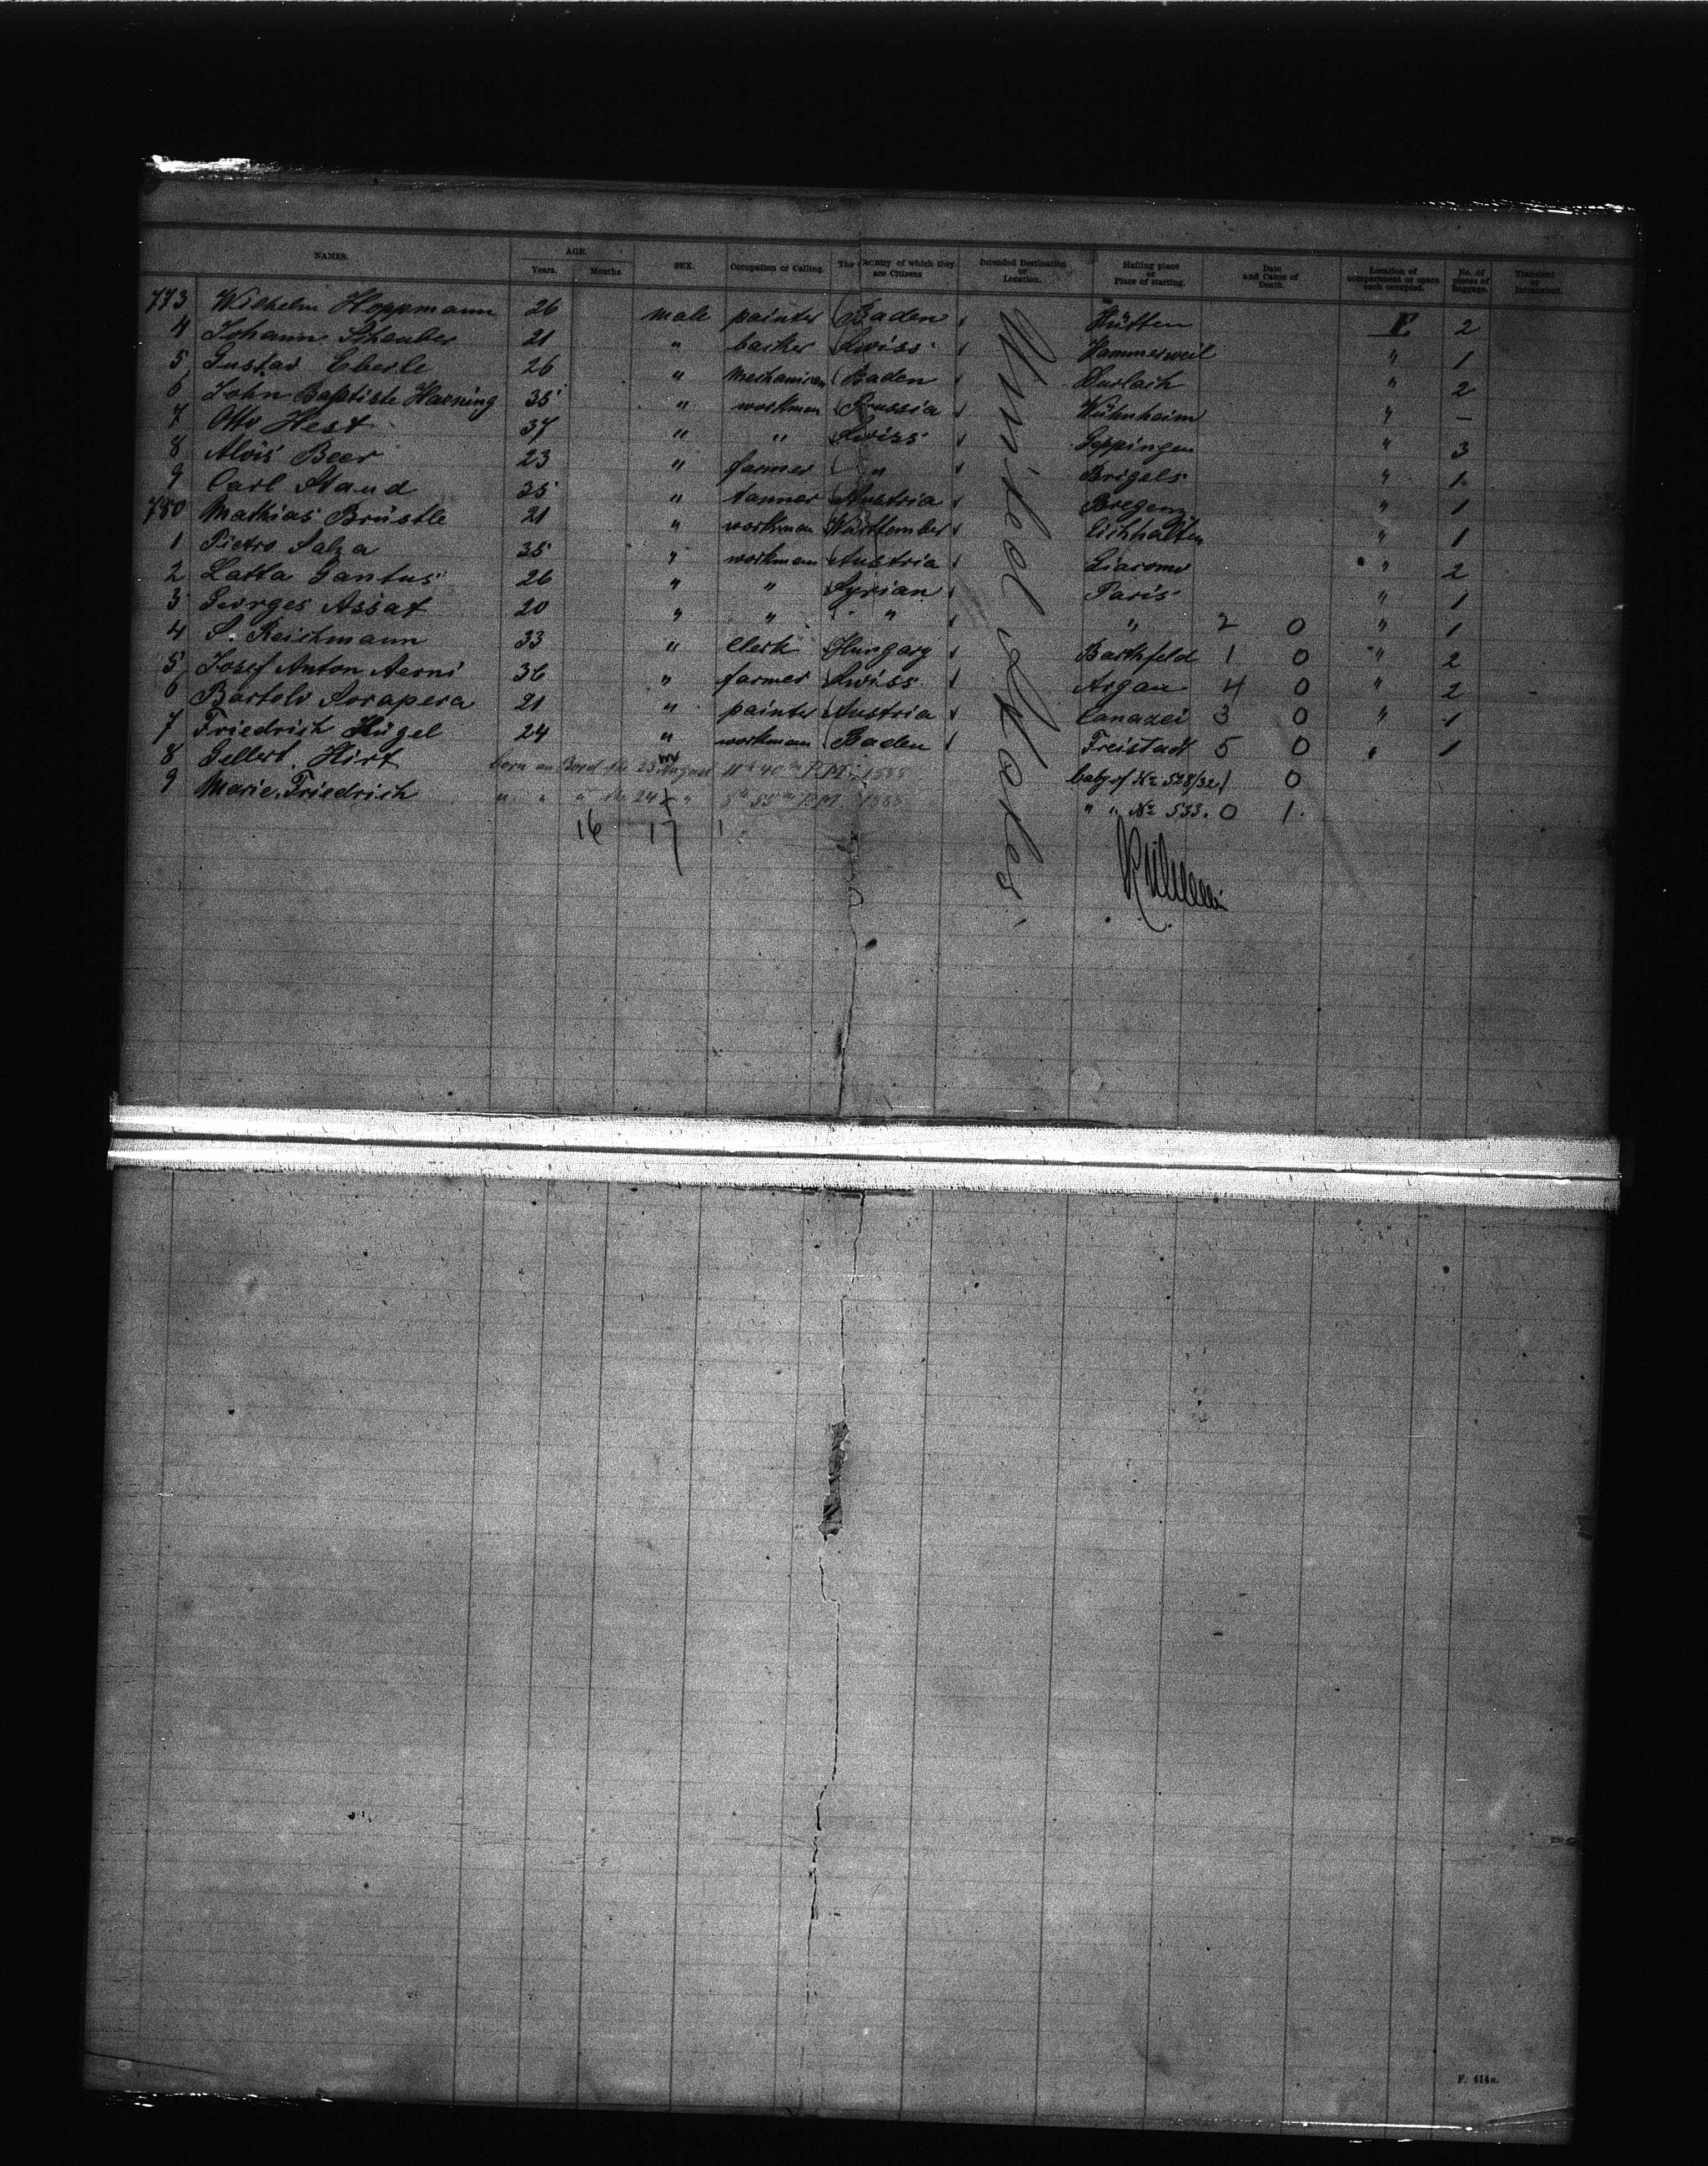 NAMES. AGE. SEX. Occupation or Calling. The Country of which they are Citizens Intended Destination or Location. Hailing place or Place of starting. Date and Cause of Death. Location of compartment or space each occupied. No. of pieces of Baggage. Transient or Intransient.
Years. Months.
773 Wilhelm Hoppmann 26 male painter Baden Hütten F 2
4 Johann Sthauber 21 " backer Swiss Hammerweil " 1
5 Gustav Eberle 26 " mechanican Baden Durlach " 2
6 John Baptiste Harning 35 " workman Prussia " –
7 Otto Hest 37 " " Swiss Geppingen " 3
8 Alois Beer 23 " farmer " Brigels " 1
9 Carl Staud 35 " tanner Austria Bregenz " 1
780 Mathias Brüstle 21 " workman Württemberg Eichhalten " 1
1 Pietro Salza 35 " workman Austria Giacomo " 2
2 Latta Gantus 26 " " Syrian Paris " 1
3 Georges Assat 20 " " " " 2 0 " 1
4 S. Reichmann 33 " Clerk Hungary Barthfeld 1 0 " 2
5 Josef Anton Aerni 36 " farmer Swiss Argau 4 0 " 2
6 Bartolo Sorapera 21 " painter Austria Canazei 3 0 " 1
7 Friedrich Hügel 24 " workman Baden Freistadt 5 0 " 1
8 Gellert Hirt born on Bord the 23 August 11h 40m P.M. 1888 baby of No 528/32 1 0
9 Marie Friedrich " " " the 24 " 8h 55m P.M. 1888 " " No 533. 0 1.
16 17 1
United States
F. 414a.